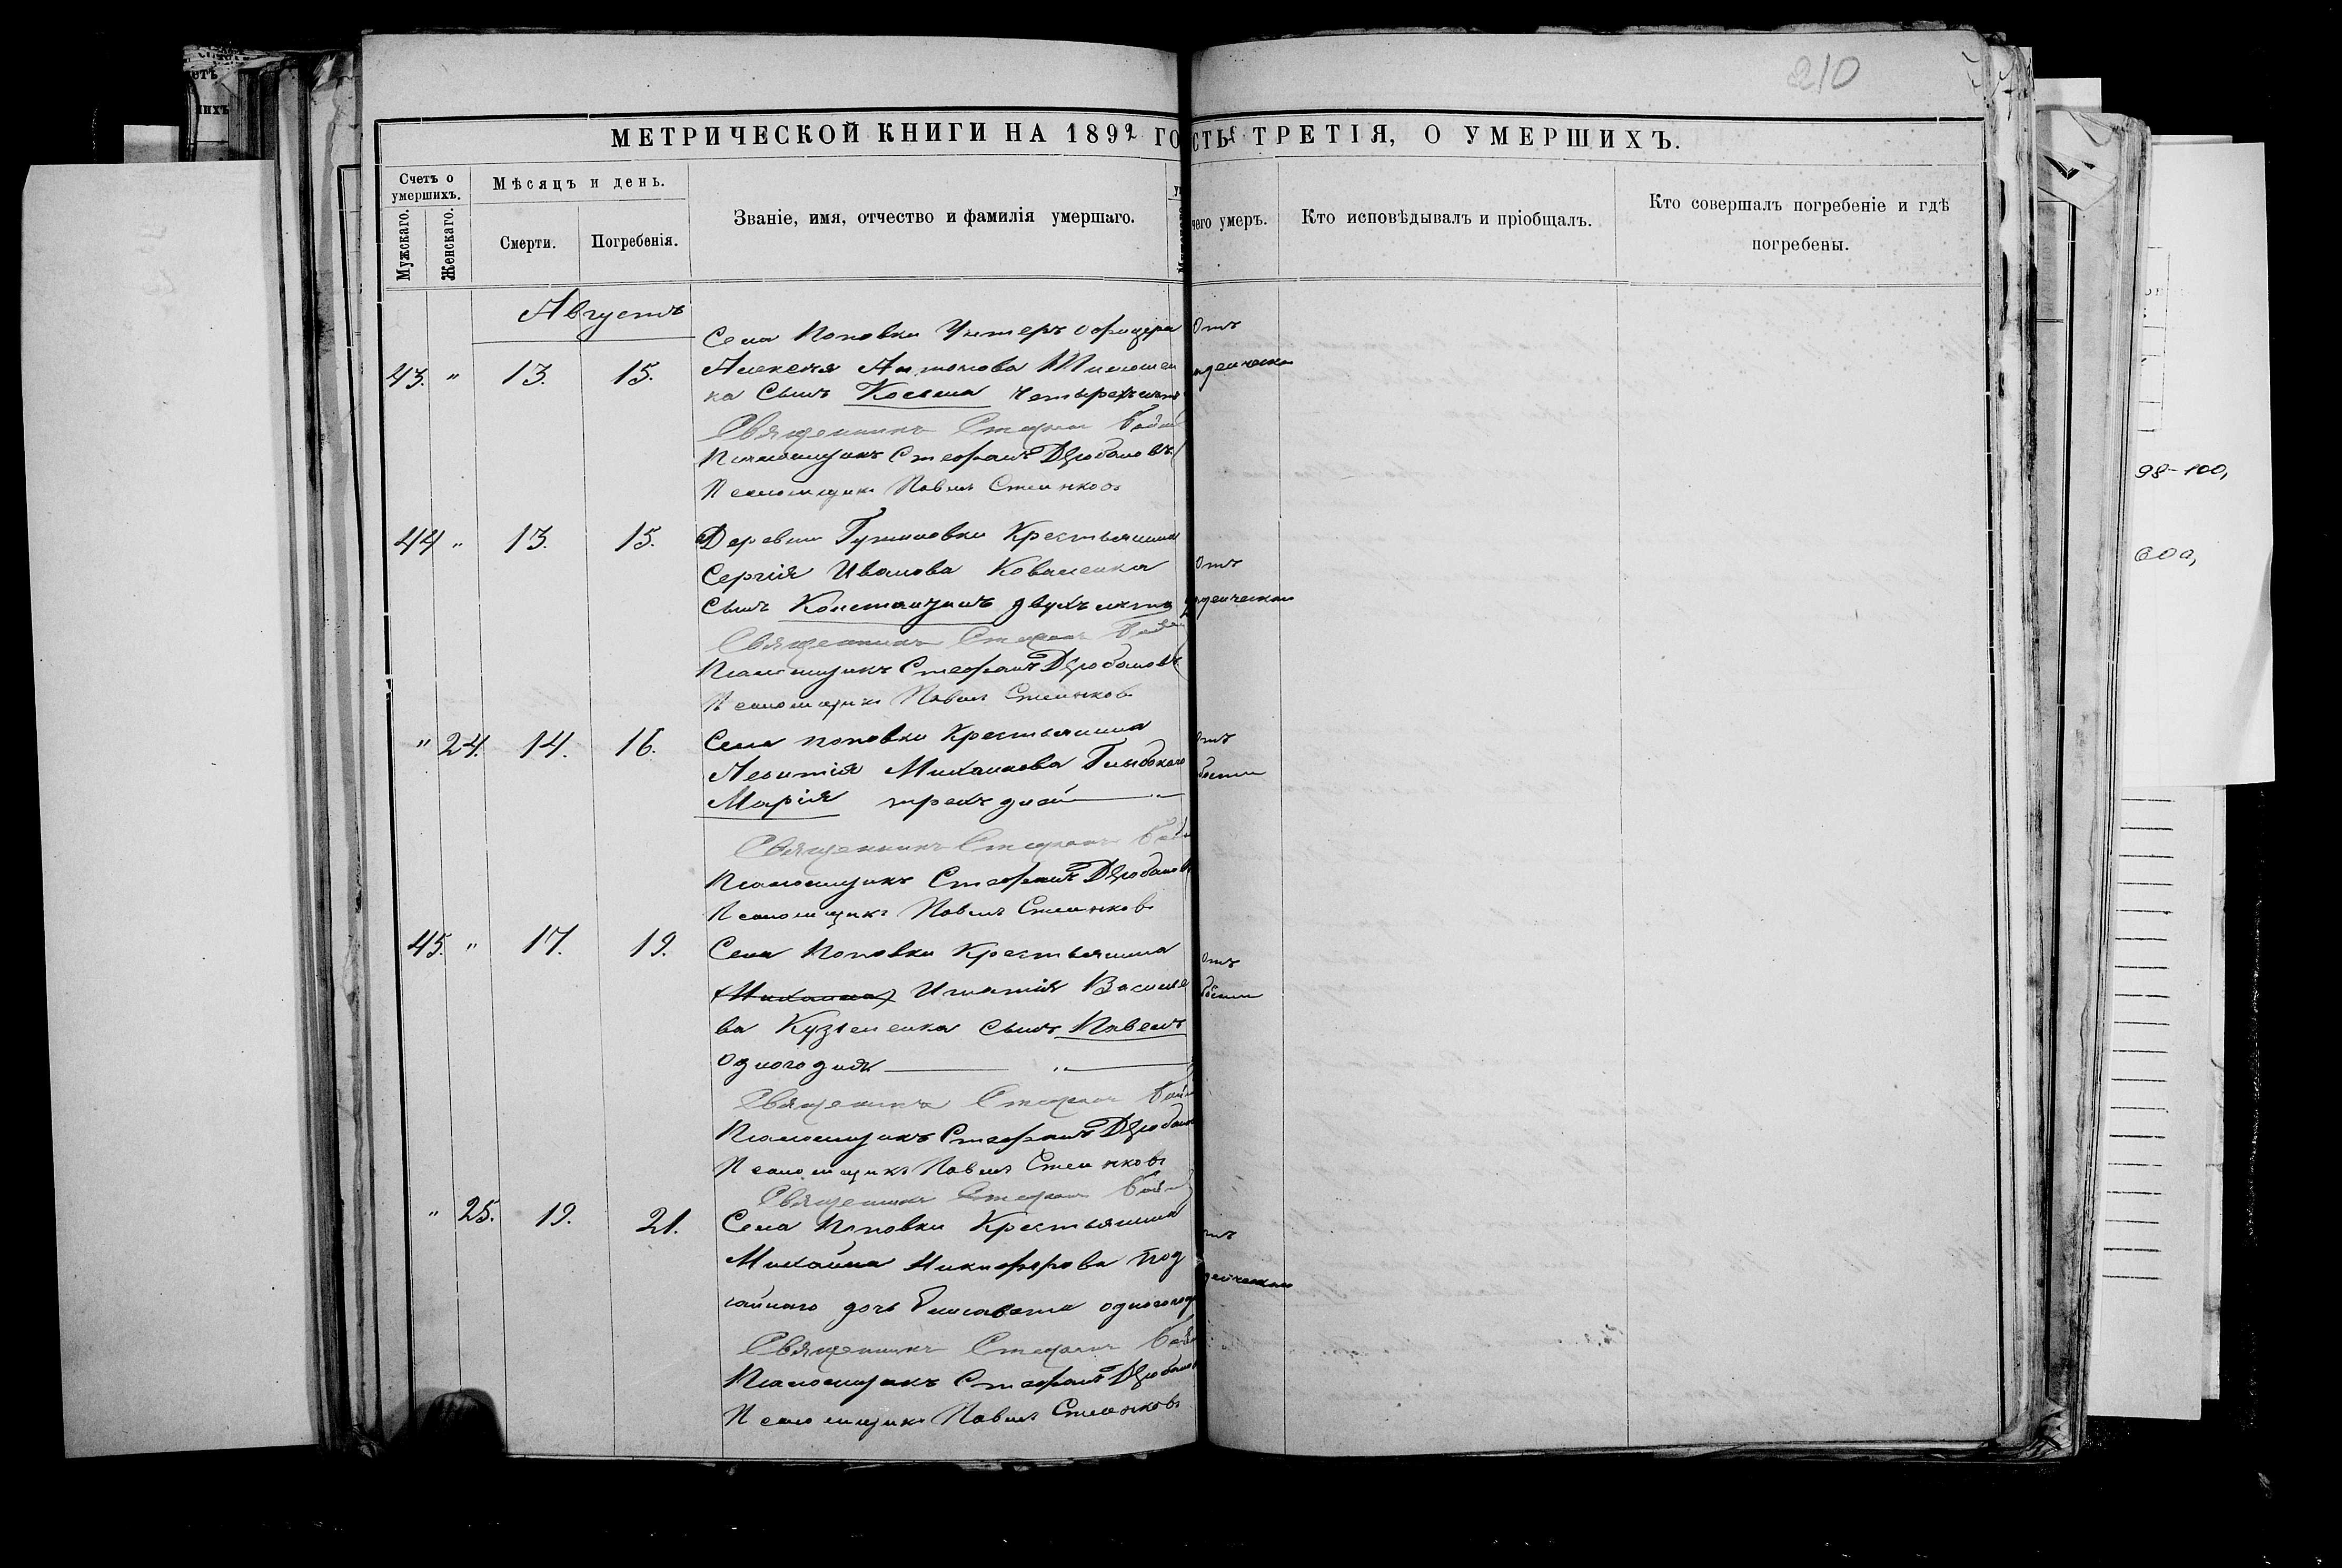 210
МЕТРИЧЕСКОЙ КНИГИ НА 1892 ГО
СТЬ ТРЕТІЯ, О УМЕРШИХЪ.
Счетъ о умершихъ.
Мужскаго.
Женскаго.
Мѣсяцъ и день.
Смерти.
Погребенія.
Званіе, имя, отчество и фамилія умершаго.
чего умеръ.
Кто исповѣдывалъ и пріобщалъ.
Кто совершалъ погребеніе и гдѣ
погребены.
Августъ
Села Поповки Унтеръ Офицера
Отъ
43. " 13. 15. Алексея Антонова
ка Сынъ Косьма четырехъ
Священникъ Стефанъ
Псаломщикъ Стефанъ Дзюбановъ
Псаломщикъ Павелъ
44 " 13. 15. Деревни Крестьянина
Сергія Иванова Коваленка
Отъ
Сынъ Константинъ двухъ лѣтъ
Священникъ Стефанъ
Псаломщикъ Стефанъ Дзюбановъ
Псаломщикъ Павелъ
" 24. 14. 16. Села Поповки Крестьянина
Отъ
Леонтія Михаилова
Марія трехъ дней "
Священникъ Стефанъ
Псаломщикъ Стефанъ Дзюбановъ
Псаломщикъ Павелъ
45. " 17. 19. Села Поповки Крестьянина
Отъ
Михаила Игнатія Василье
ва Кузменка сынъ Павелъ
Одного дня "
Священникъ Стефанъ
Псаломщикъ Стефанъ Дзюбанов
Псаломщикъ Павелъ
Священникъ Стефанъ
" 25. 19. 21. Села Поповки Крестьянина
Михаила Никифорова Под
дочь Елисавета одного года
Священникъ Стефанъ
Псаломщикъ Стефанъ Дзюбанов
Псаломщикъ Павелъ
98-100,